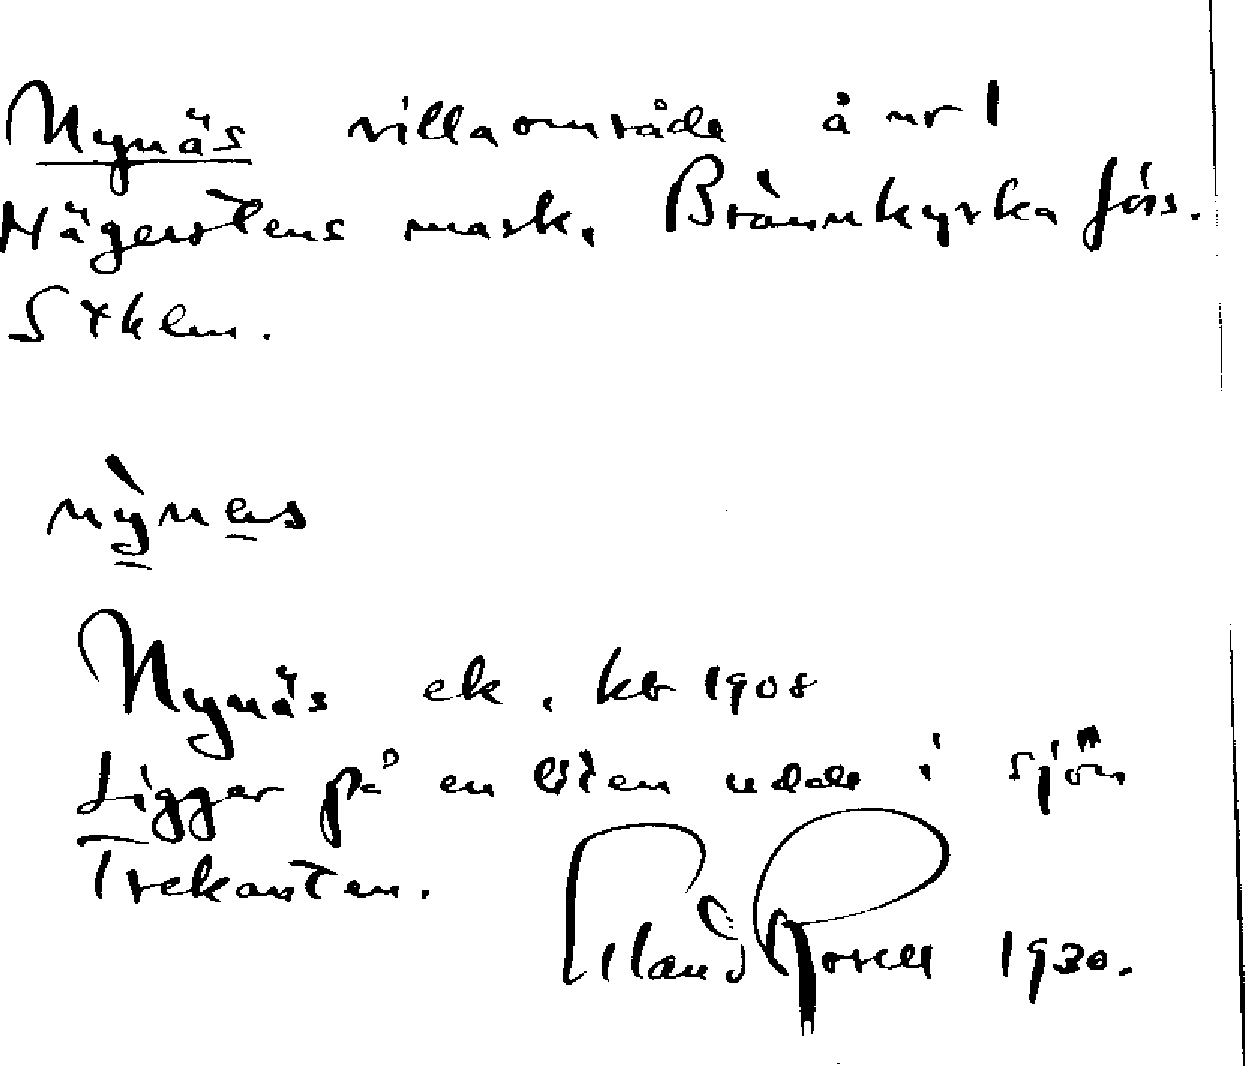 Nynäs villaområde å nr 1
Hägerstens mark, Brännkyrka förs.
Sthlm.
nỳnens
Nynäs ek. kb 1908
Ligger på en liten udde i sjön
Trekanten.
Erland Rosell 1930.